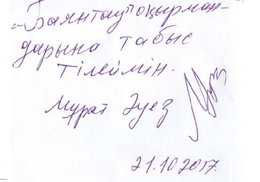 "Баянтау" оқырман-
дарына табыс
тілеймін.
Мұрат Әуез
21.10.2017.